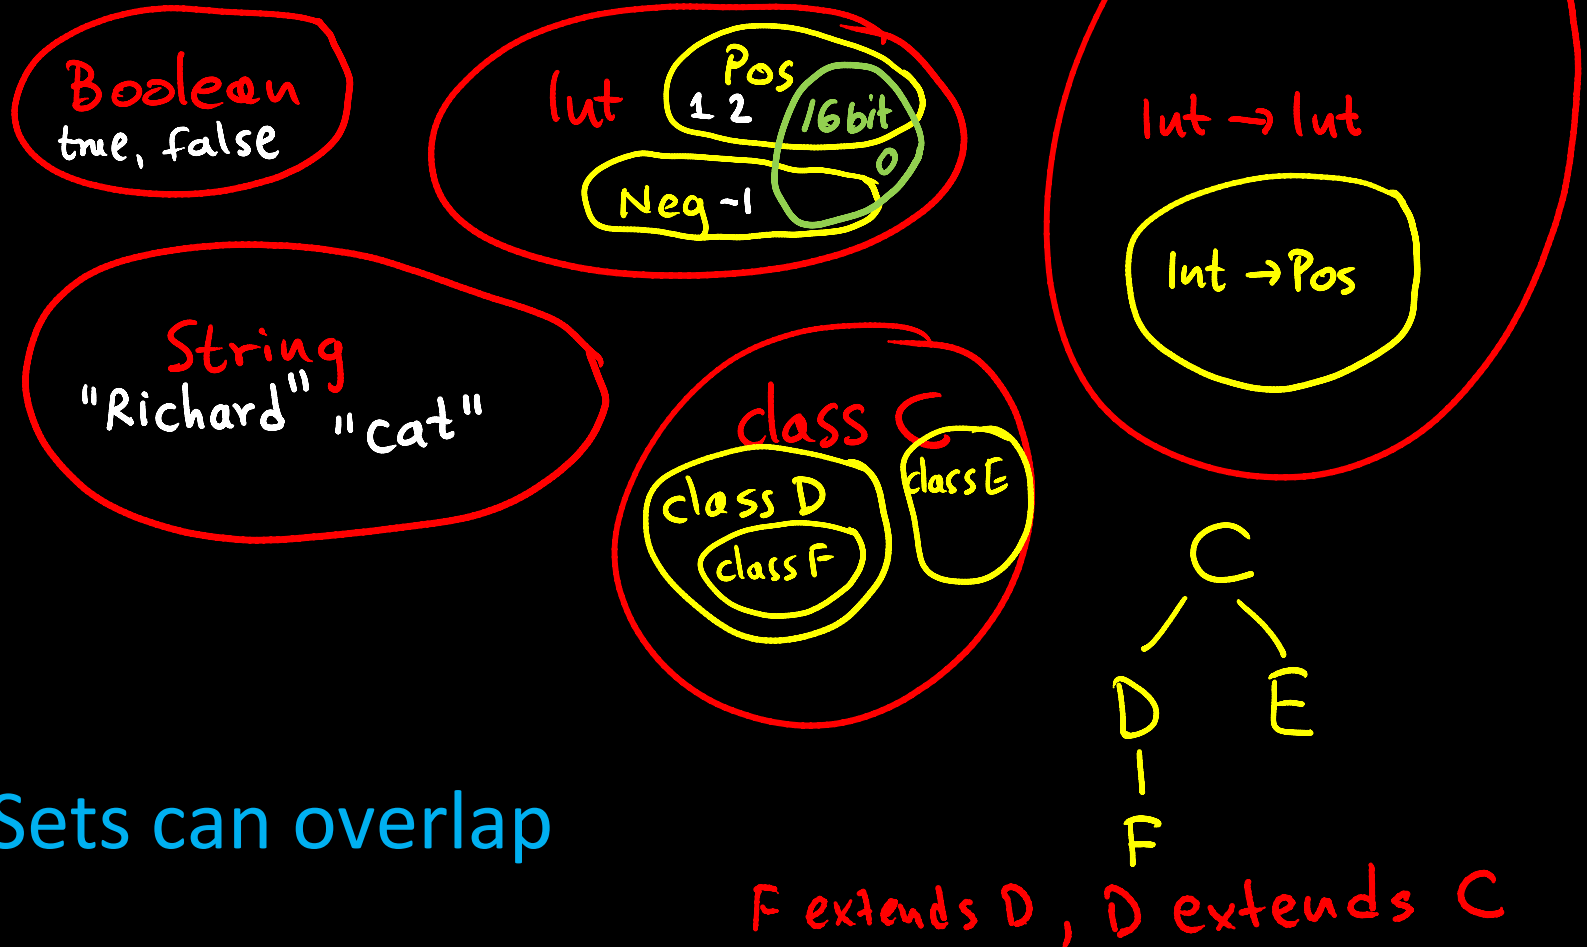 Boolean
true, false
Int
Pos
1 2
16bit
0
Neg -1
Int → Int
Int → Pos
String
"Richard" "cat"
class C
class D
class E
class F
C
D E
F
Sets can overlap
F extends D, D extends C